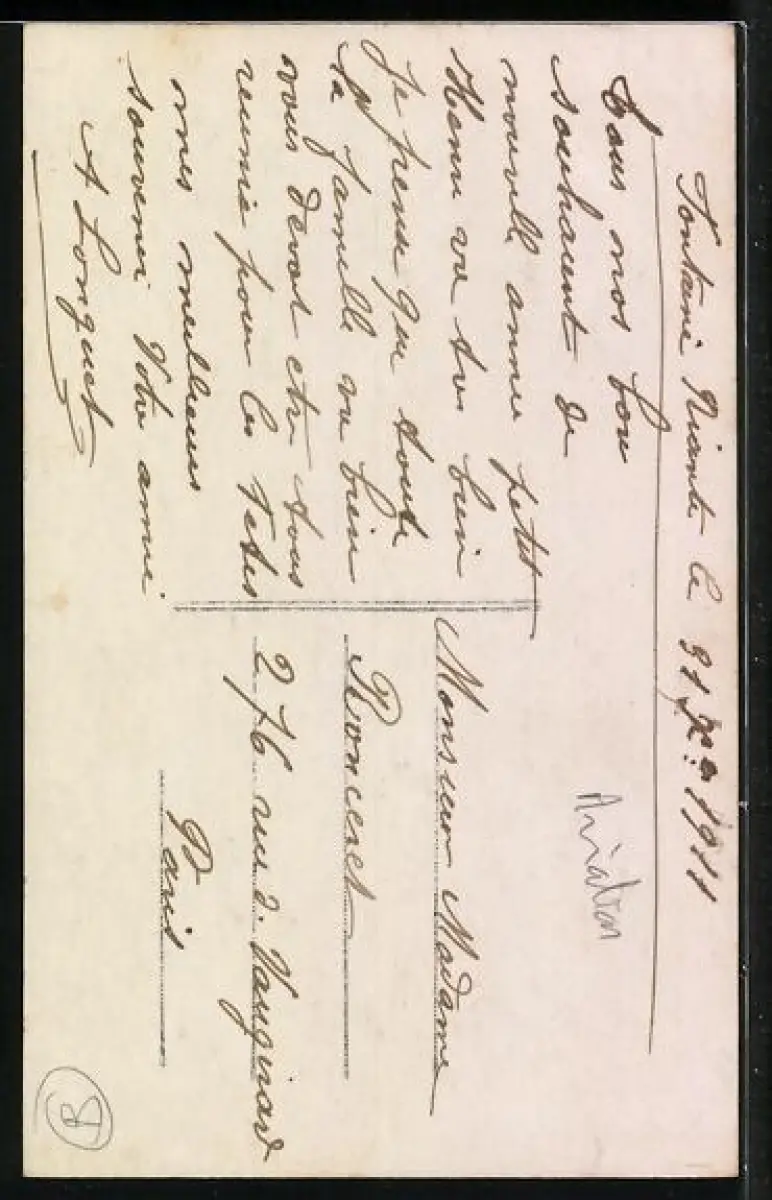 Fontaine Riante le 31 Xbre 1911
Tous nos bon
souhaient de
nouvelle annee petit
Henri va tres bien
Je pense que toute
ta famille va bien
vous devat etre tous
reunie pour les fetes
mes meilleures
souvenir Votre amie
A Longuet
Monsieur Madame
Roncenet
276 rue d. Vaugirard
Paris
Aviation
B